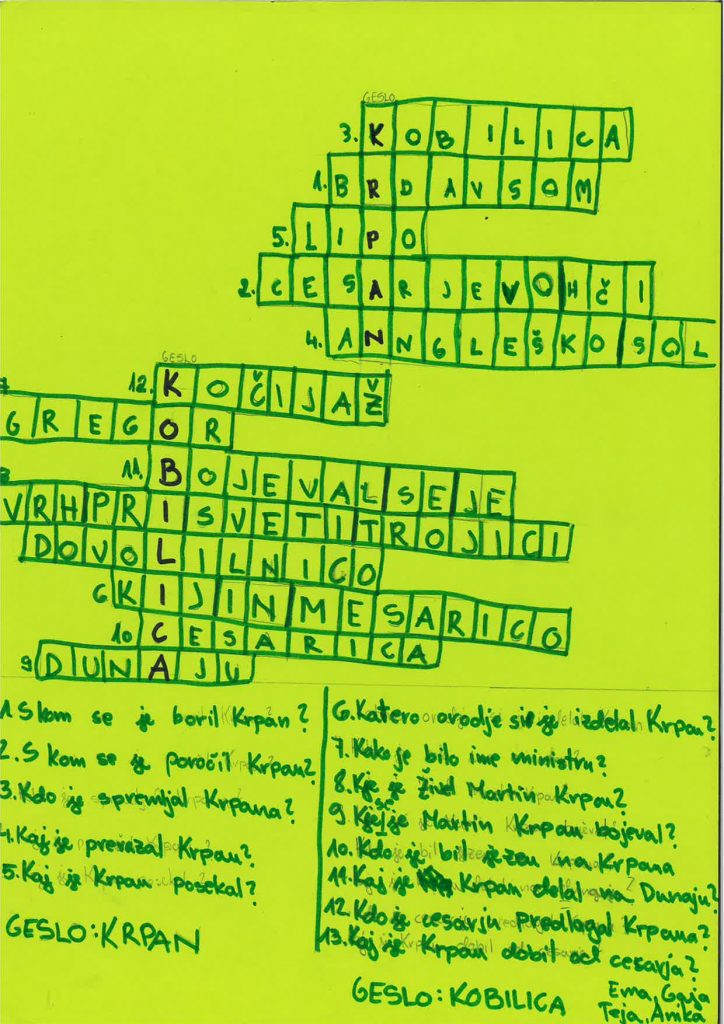 GESLO
3. KOBILICA
1. BRDAVSOM
5. LIPO
2. CESARJEVOHČI
4. ANNGLEŠKOSOL
GESLO
12. KOČIJAŽ
7 GREGOR
11. BOJEVALSEJE
8 VRHPRISVETITROJICI
DOVOLILNICO
6 KIJINMESARICO
10 CESARICA
9 DUNAJU
1. S kom se je boril Krpan?
2. S kom se je poročil Krpan?
3. Kdo je spremljal Krpana?
4. Kaj je prevažal Krpan?
5. Kaj je Krpan posekal?
GESLO: KRPAN
6. Katero orodje si je izdelal Krpan?
7. Kako je bilo ime ministru?
8. Kje je živel Martin Krpan?
9. Kje se je Martin Krpan bojeval?
10. Kdo je bil jezen na Krpana
11. Kaj je Krpan delal na Dunaju?
12. Kdo je cesarju predlagal Krpana?
13. Kaj je Krpan dobil od cesarja?
GESLO: KOBILICA
Ema, Gaja
Teja, Anika